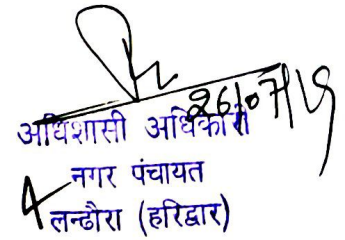 26/07/19
अधिशासी अधिकारी
नगर पंचायत
लन्ढौरा (हरिद्वार)